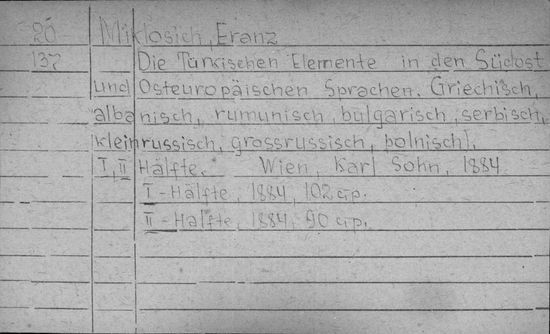 20 Miklosich, Franz
137 Die Türkischen Elemente in den Südost
und Osteuropäischen Sprachen. Griechisch,
albanisch, rumunisch, bulgarisch, serbisch,
kleinrussisch, grossrussisch, polnisch).
I, II Hälfte. Wien, Karl Sohn, 1884
I - Hälfte, 1884, 102 стр.
II - Hälfte, 1884, 90 стр.